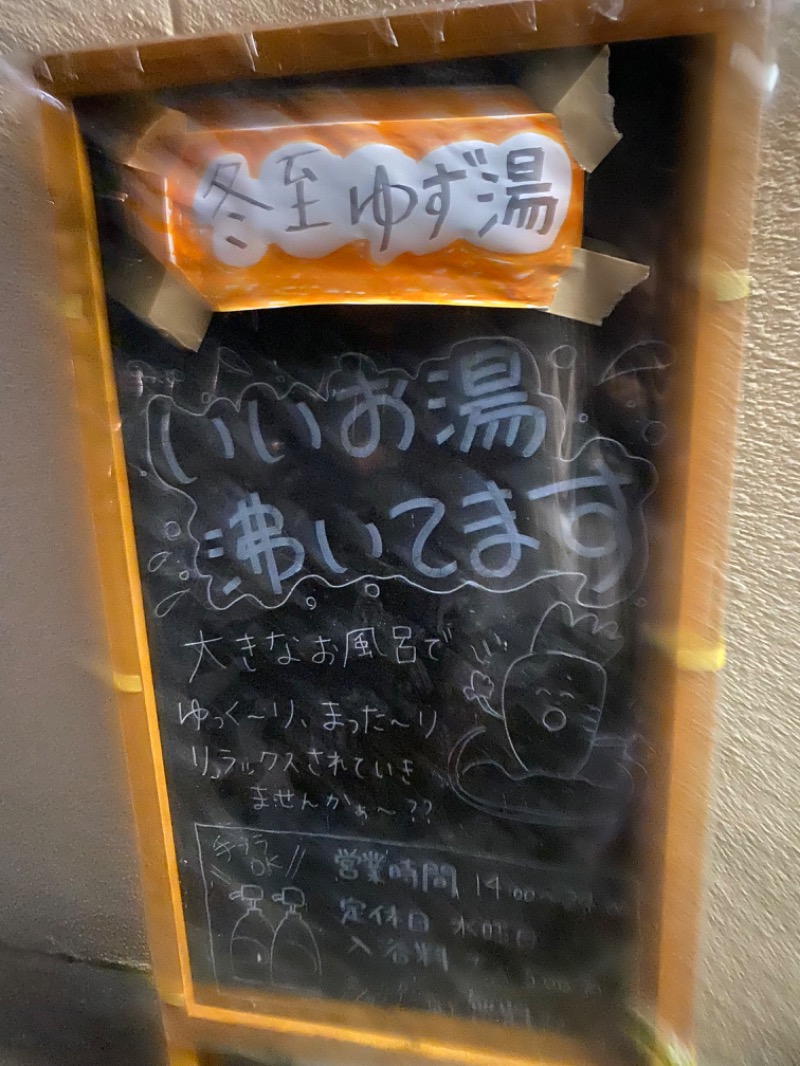 冬至ゆず湯
いいお湯
沸いてます
大きなお風呂で
ゆっく〜り、まった〜り
リラックスされていき
ませんかぁ〜??
手ブラ
OK
営業時間 14:00〜
定休日 水曜日
入浴料